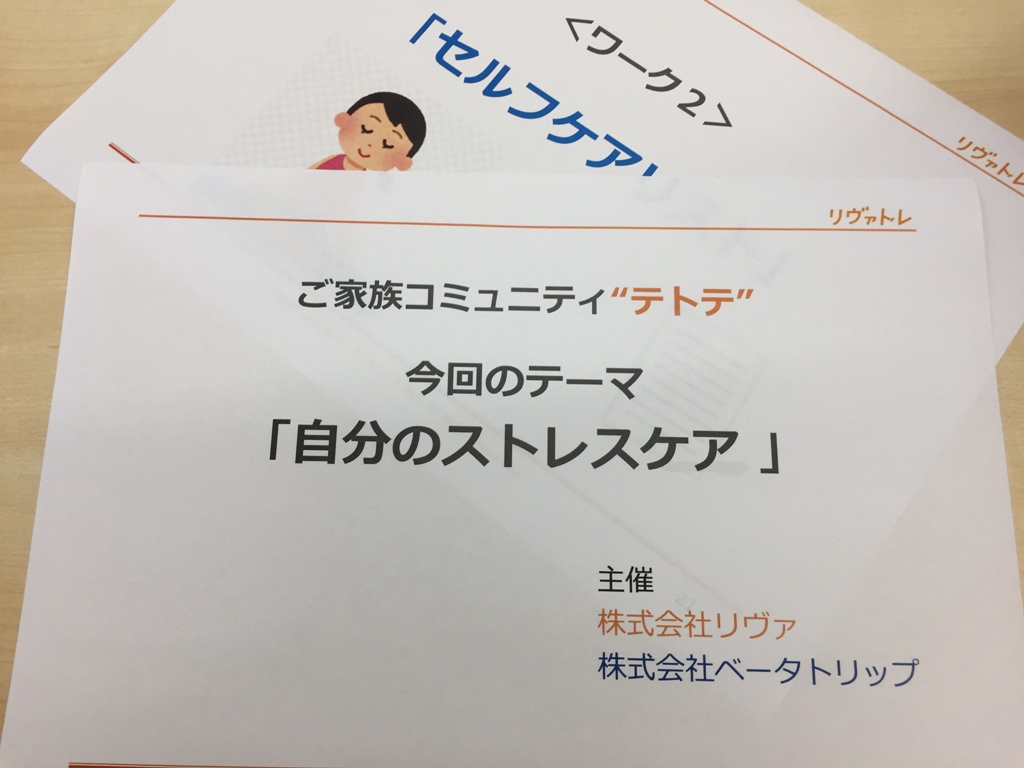 ＜ワーク２＞
「セルフケア」
リヴァトレ
リヴァトレ
ご家族コミュニティ“テトテ”
今回のテーマ
「自分のストレスケア 」
主催
株式会社リヴァ
株式会社ベータトリップ